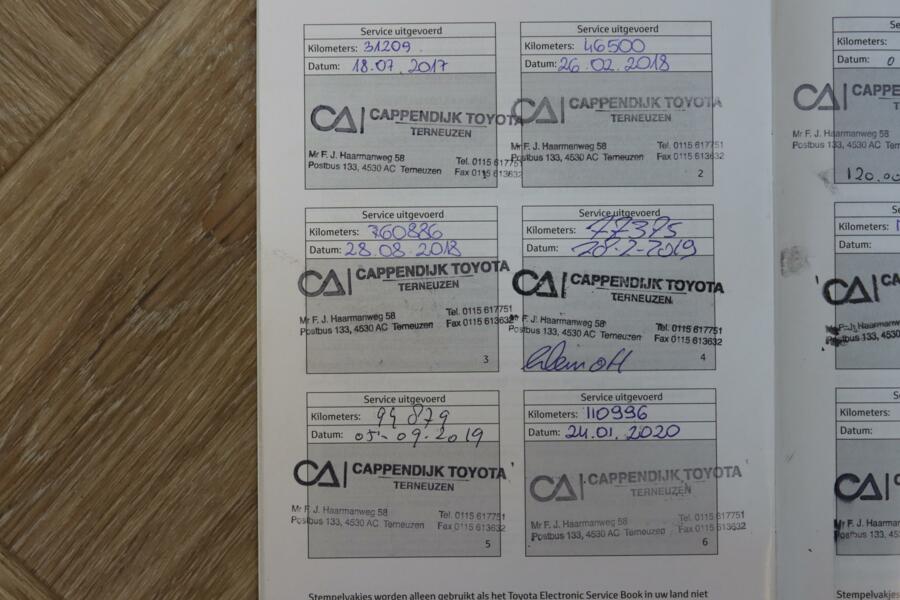 Service uitgevoerd
Kilometers: 31209
Datum: 18.07.2017
CAPPENDIJK TOYOTA
TERNEUZEN
Mr F. J. Haarmanweg 58
Postbus 133, 4530 AC Terneuzen
Tel. 0115 617751
Fax 0115 613632
1
Service uitgevoerd
Kilometers: 46500
Datum: 26.02.2018
CAPPENDIJK TOYOTA
TERNEUZEN
Mr F. J. Haarmanweg 58
Postbus 133, 4530 AC Terneuzen
Tel. 0115 617751
Fax 0115 613632
2
Service uitgevoerd
Kilometers: 760886
Datum: 28.08.2018
CAPPENDIJK TOYOTA
TERNEUZEN
Mr F. J. Haarmanweg 58
Postbus 133, 4530 AC Terneuzen
Tel. 0115 617751
Fax 0115 613632
3
Service uitgevoerd
Kilometers: 77375
Datum: 28-2-2019
CAPPENDIJK TOYOTA
TERNEUZEN
Mr F. J. Haarmanweg 58
Postbus 133, 4530 AC Terneuzen
Tel. 0115 617751
Fax 0115 613632
4
Service uitgevoerd
Kilometers: 94879
Datum: 05-09-2019
CAPPENDIJK TOYOTA
TERNEUZEN
Mr F. J. Haarmanweg 58
Postbus 133, 4530 AC Terneuzen
Tel. 0115 617751
Fax 0115 613632
5
Service uitgevoerd
Kilometers: 110996
Datum: 24.01.2020
CAPPENDIJK TOYOTA
TERNEUZEN
Mr F. J. Haarmanweg 58
Postbus 133, 4530 AC Terneuzen
Tel. 0115 617751
Fax 0115 613632
6
Stempelvakjes worden alleen gebruikt als het Toyota Electronic Service Book in uw land niet
Kilometers:
Datum:
Mr F. J. Haarmanweg 58
Postbus 133, 4530 AC
Kilometers:
Datum:
Postbus 133, 4530
Kilometers:
Datum:
Stempelvakjes